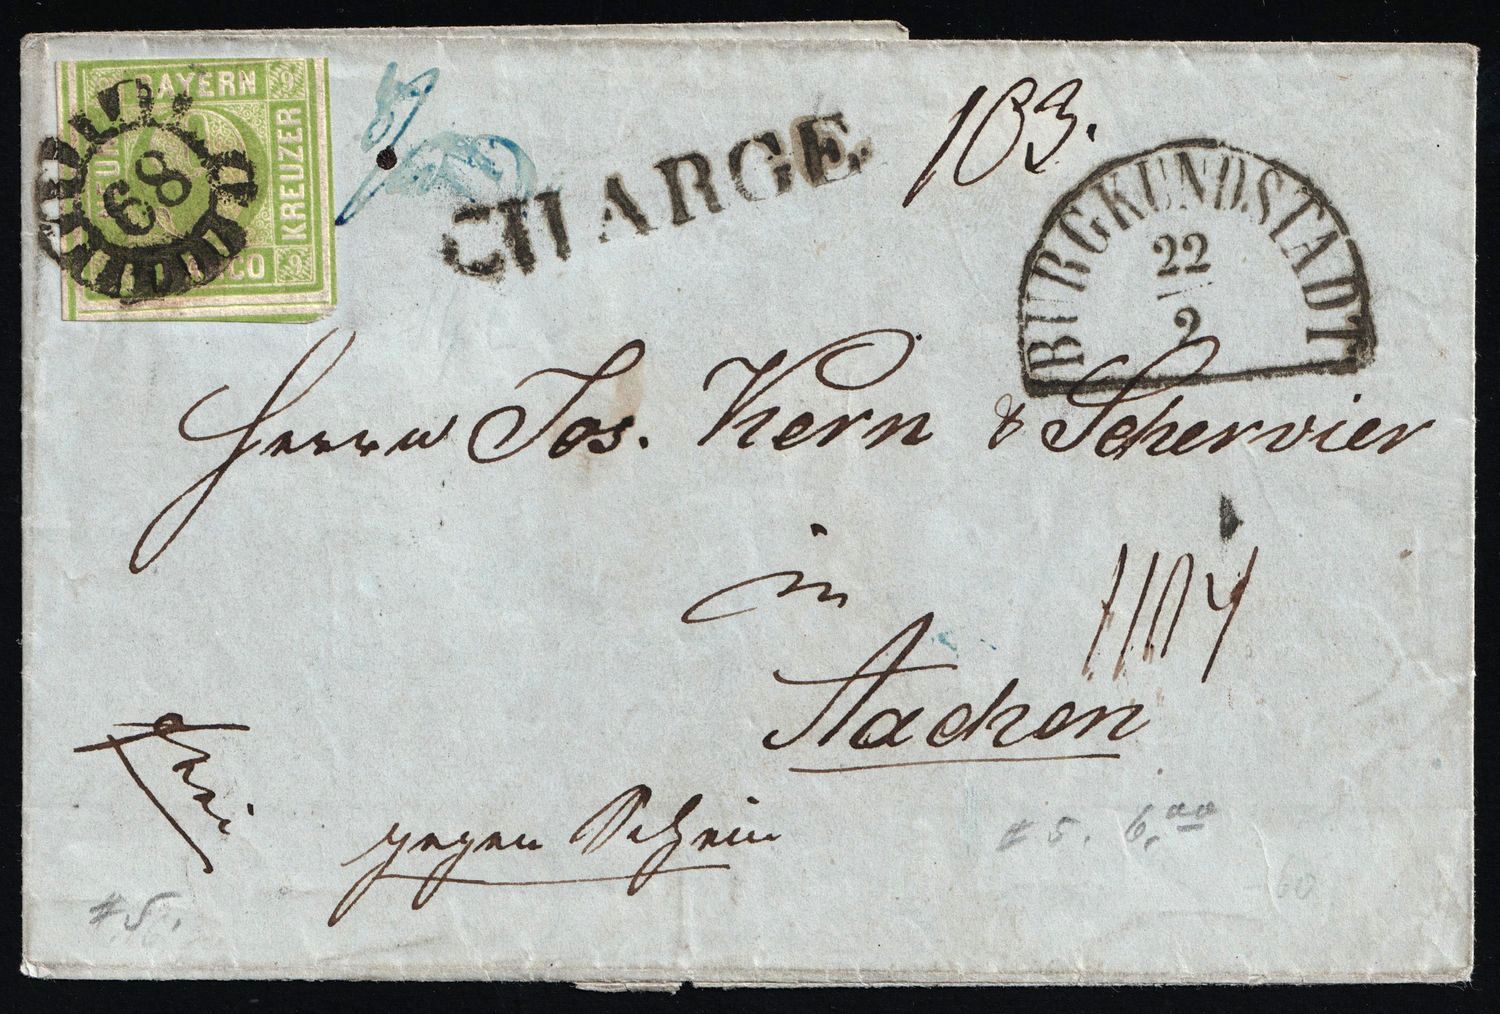 BAYERN
NEUN
KREUZER
9
9
68
CHARGE.
183.
BURGKUNDSTADT
22
9
Herrn Jos. Kern & Schervier
in
Aachen
frei
gegen Schein
# 5. 6,00
# 5.
60